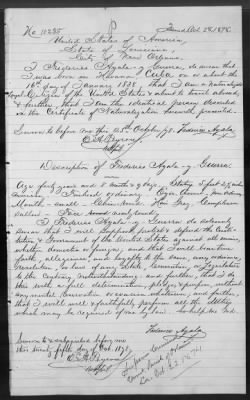 No 10285
Issued Oct 29, 1878.
United States of America,
State of Louisiana,
City of New Orleans.
I Frederico Ayala y Guerra, do swear that
I was born in Havana, Cuba on or about the
16th day of January 1838. That I am a naturalized
Citizen of the United States & about to travel abroad,
& further, that I am the identical person described
in the Certificate of Naturalization herewith presented.
Sworn to before me this 25th October, 78. Federico Ayala
Description of Frederico Ayala y Guerra.
Age forty years
Forehead ordinary Eyes Nose ordinary
Mouth small Chin round Hair Grey, Complexion
sallow Face round
I Frederico Ayala y Guerra do solemnly
swear that I will support, protect & defend the Constitution
& Government of the United States against all enemies,
whether domestic or foreign, and that I will bear true
faith, allegiance, and loyalty to the same, any ordinance,
resolution, or law of any State, Convention, or Legislature
to the contrary notwithstanding; and further, that I do
this with a full determination, pledge, & purpose, without
any mental reservation or evasion whatsoever; and further,
that I will well & faithfully perform all the duties
which may be required of me by law. So help me God.
Federico Ayala
Sworn to & subscribed before me
this twenty fifth day of Oct. 1878.